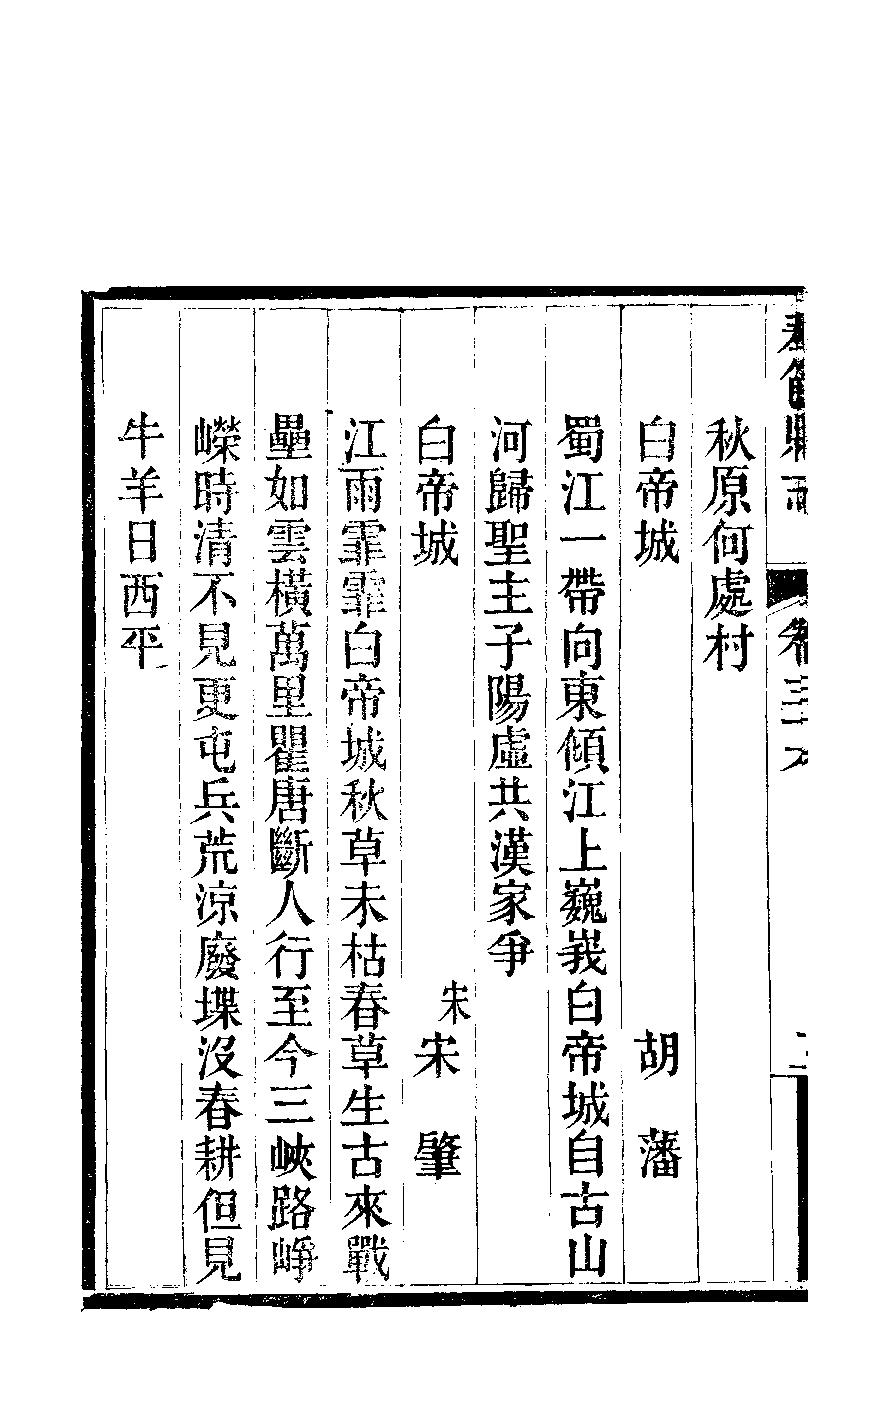 秋原何處村
白帝城 胡藩
蜀江一帶向東傾江上巍峩白帝城自古山
河歸聖主子陽虛共漢家爭
白帝城 宋宋肇
江雨霏霏白帝城秋草未枯春草生古來戰
壘如雲橫萬里瞿唐斷人行至今三峽路崢
嶸時清不見更屯兵荒涼廢堞沒春耕但見
牛羊日西平